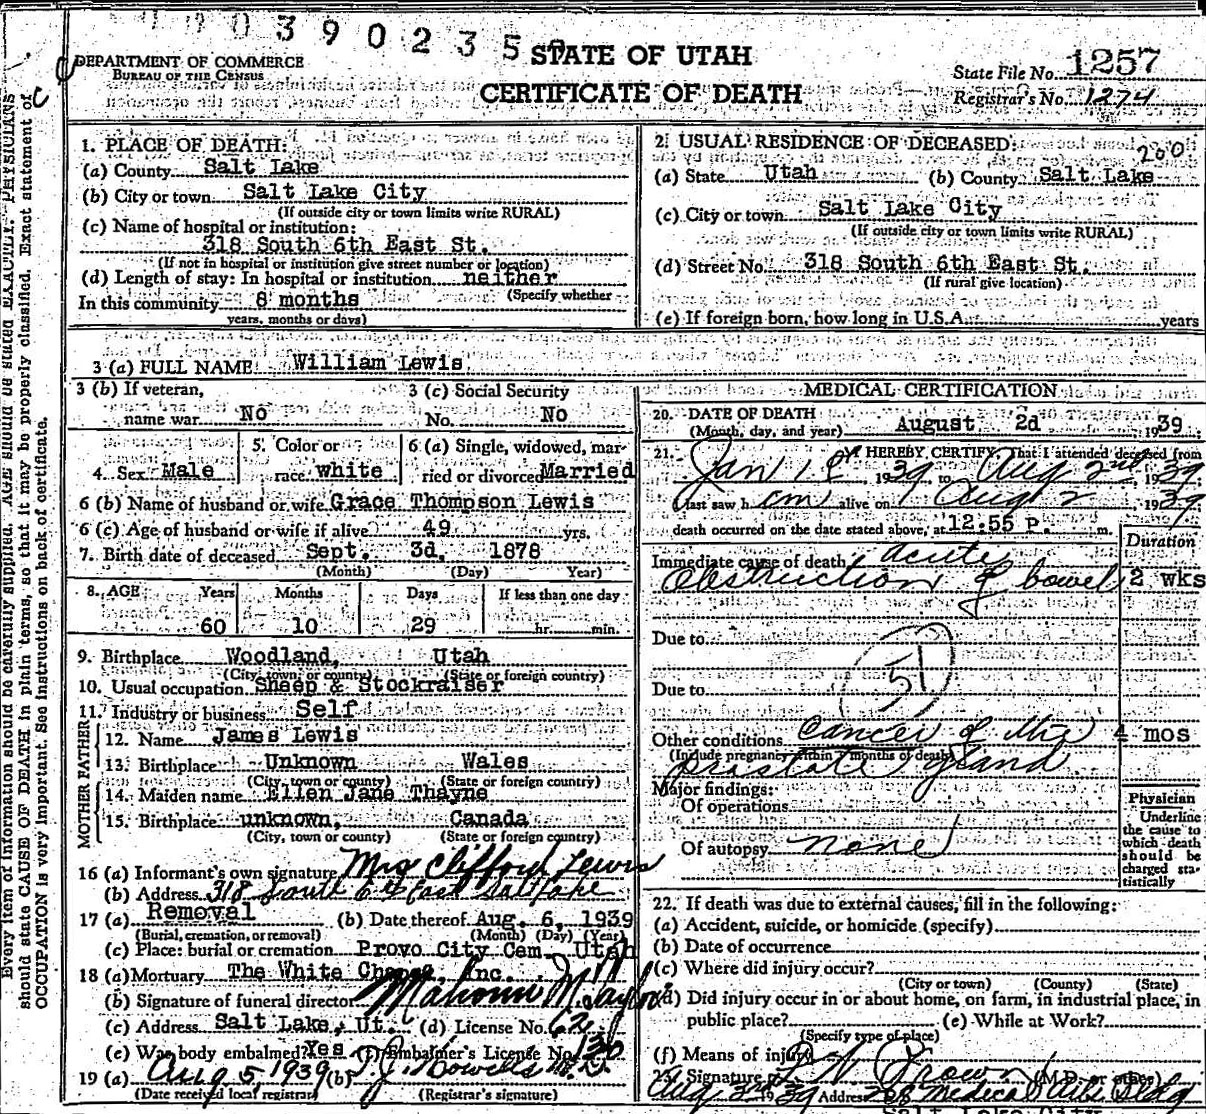 0 3 9 0 2 3 5
STATE OF UTAH
DEPARTMENT OF COMMERCE
BUREAU OF THE CENSUS
CERTIFICATE OF DEATH
State File No. 1257
Registrar's No. 1274
Every item of information should be carefully supplied. AGE should be stated EXACTLY. PHYSICIANS
should state CAUSE OF DEATH in plain terms, so that it may be properly classified. Exact statement of
OCCUPATION is very important. See instructions on back of certificate.
1. PLACE OF DEATH:
(a) County Salt Lake
(b) City or town Salt Lake City
(If outside city or town limits write RURAL)
(c) Name of hospital or institution:
318 South 6th East St.
(If not in hospital or institution give street number or location)
(d) Length of stay: In hospital or institution neither
(Specify whether
In this community 8 months
years, months or days)
2. USUAL RESIDENCE OF DECEASED:
200
(a) State Utah (b) County Salt Lake
(c) City or town Salt Lake City
(If outside city or town limits write RURAL)
(d) Street No. 318 South 6th East St.
(If rural give location)
(e) If foreign born, how long in U.S.A. years
3 (a) FULL NAME William Lewis
3 (b) If veteran,
name war No
3 (c) Social Security
No. No
4. Sex Male
5. Color or
race white
6 (a) Single, widowed, mar-
ried or divorced Married
6 (b) Name of husband or wife Grace Thompson Lewis
6 (c) Age of husband or wife if alive 49 yrs.
7. Birth date of deceased Sept. 3d, 1878
(Month) (Day) Year)
8. AGE Years Months Days If less than one day
60 10 29 hr. min.
9. Birthplace Woodland, Utah
(City, town, or county) (State or foreign country)
10. Usual occupation Sheep & Stockraiser
11. Industry or business Self
FATHER
12. Name James Lewis
13. Birthplace Unknown Wales
(City, town or county) (State or foreign country)
MOTHER
14. Maiden name Ellen Jane Thayne
15. Birthplace unknown, Canada
(City, town, or county) (State or foreign country)
16 (a) Informant's own signature Mrs Clifford Lewis
(b) Address 318 South 6th East Salt Lake
17 (a) Removal (b) Date thereof Aug. 6, 1939
(Burial, cremation, or removal) (Month) (Day) (Year)
(c) Place: burial or cremation Provo City Cem. Utah
18 (a) Mortuary The White Chapel Inc.
(b) Signature of funeral director
(c) Address Salt Lake, Ut. (d) License No. 62
(e) Was body embalmed? Yes (f) Embalmer's License No. 130
19 (a) Aug 5, 1939 (b) T.J. Howells M.D.
(Date received local registrar) (Registrar's signature)
MEDICAL CERTIFICATION
20. DATE OF DEATH
(Month, day, and year) August 2d , 1939
21. I HEREBY CERTIFY, That I attended deceased from
Jan 1 1939 to Aug 2nd, 1939
I last saw h im alive on Aug 2, 1939
death occurred on the date stated above, at 12:55 P. m.
Duration
Immediate cause of death acute
obstruction of bowel 2 wks
Due to
51
Due to
Other conditions cancer of the 4 mos
(Include pregnancy within months of death)
prostate gland
Major findings:
Of operations
Of autopsy none
Physician
Underline
the cause to
which death
should be
charged sta-
tistically
22. If death was due to external causes, fill in the following:
(a) Accident, suicide, or homicide (specify)
(b) Date of occurrence
(c) Where did injury occur?
(City or town) (County) (State)
(d) Did injury occur in or about home, on farm, in industrial place, in
public place? (e) While at Work?
(Specify type of place)
(f) Means of injury
23. Signature Brown (M.D. or other)
Aug 3rd 1939 Address Medical Arts Bldg
Salt Lake City